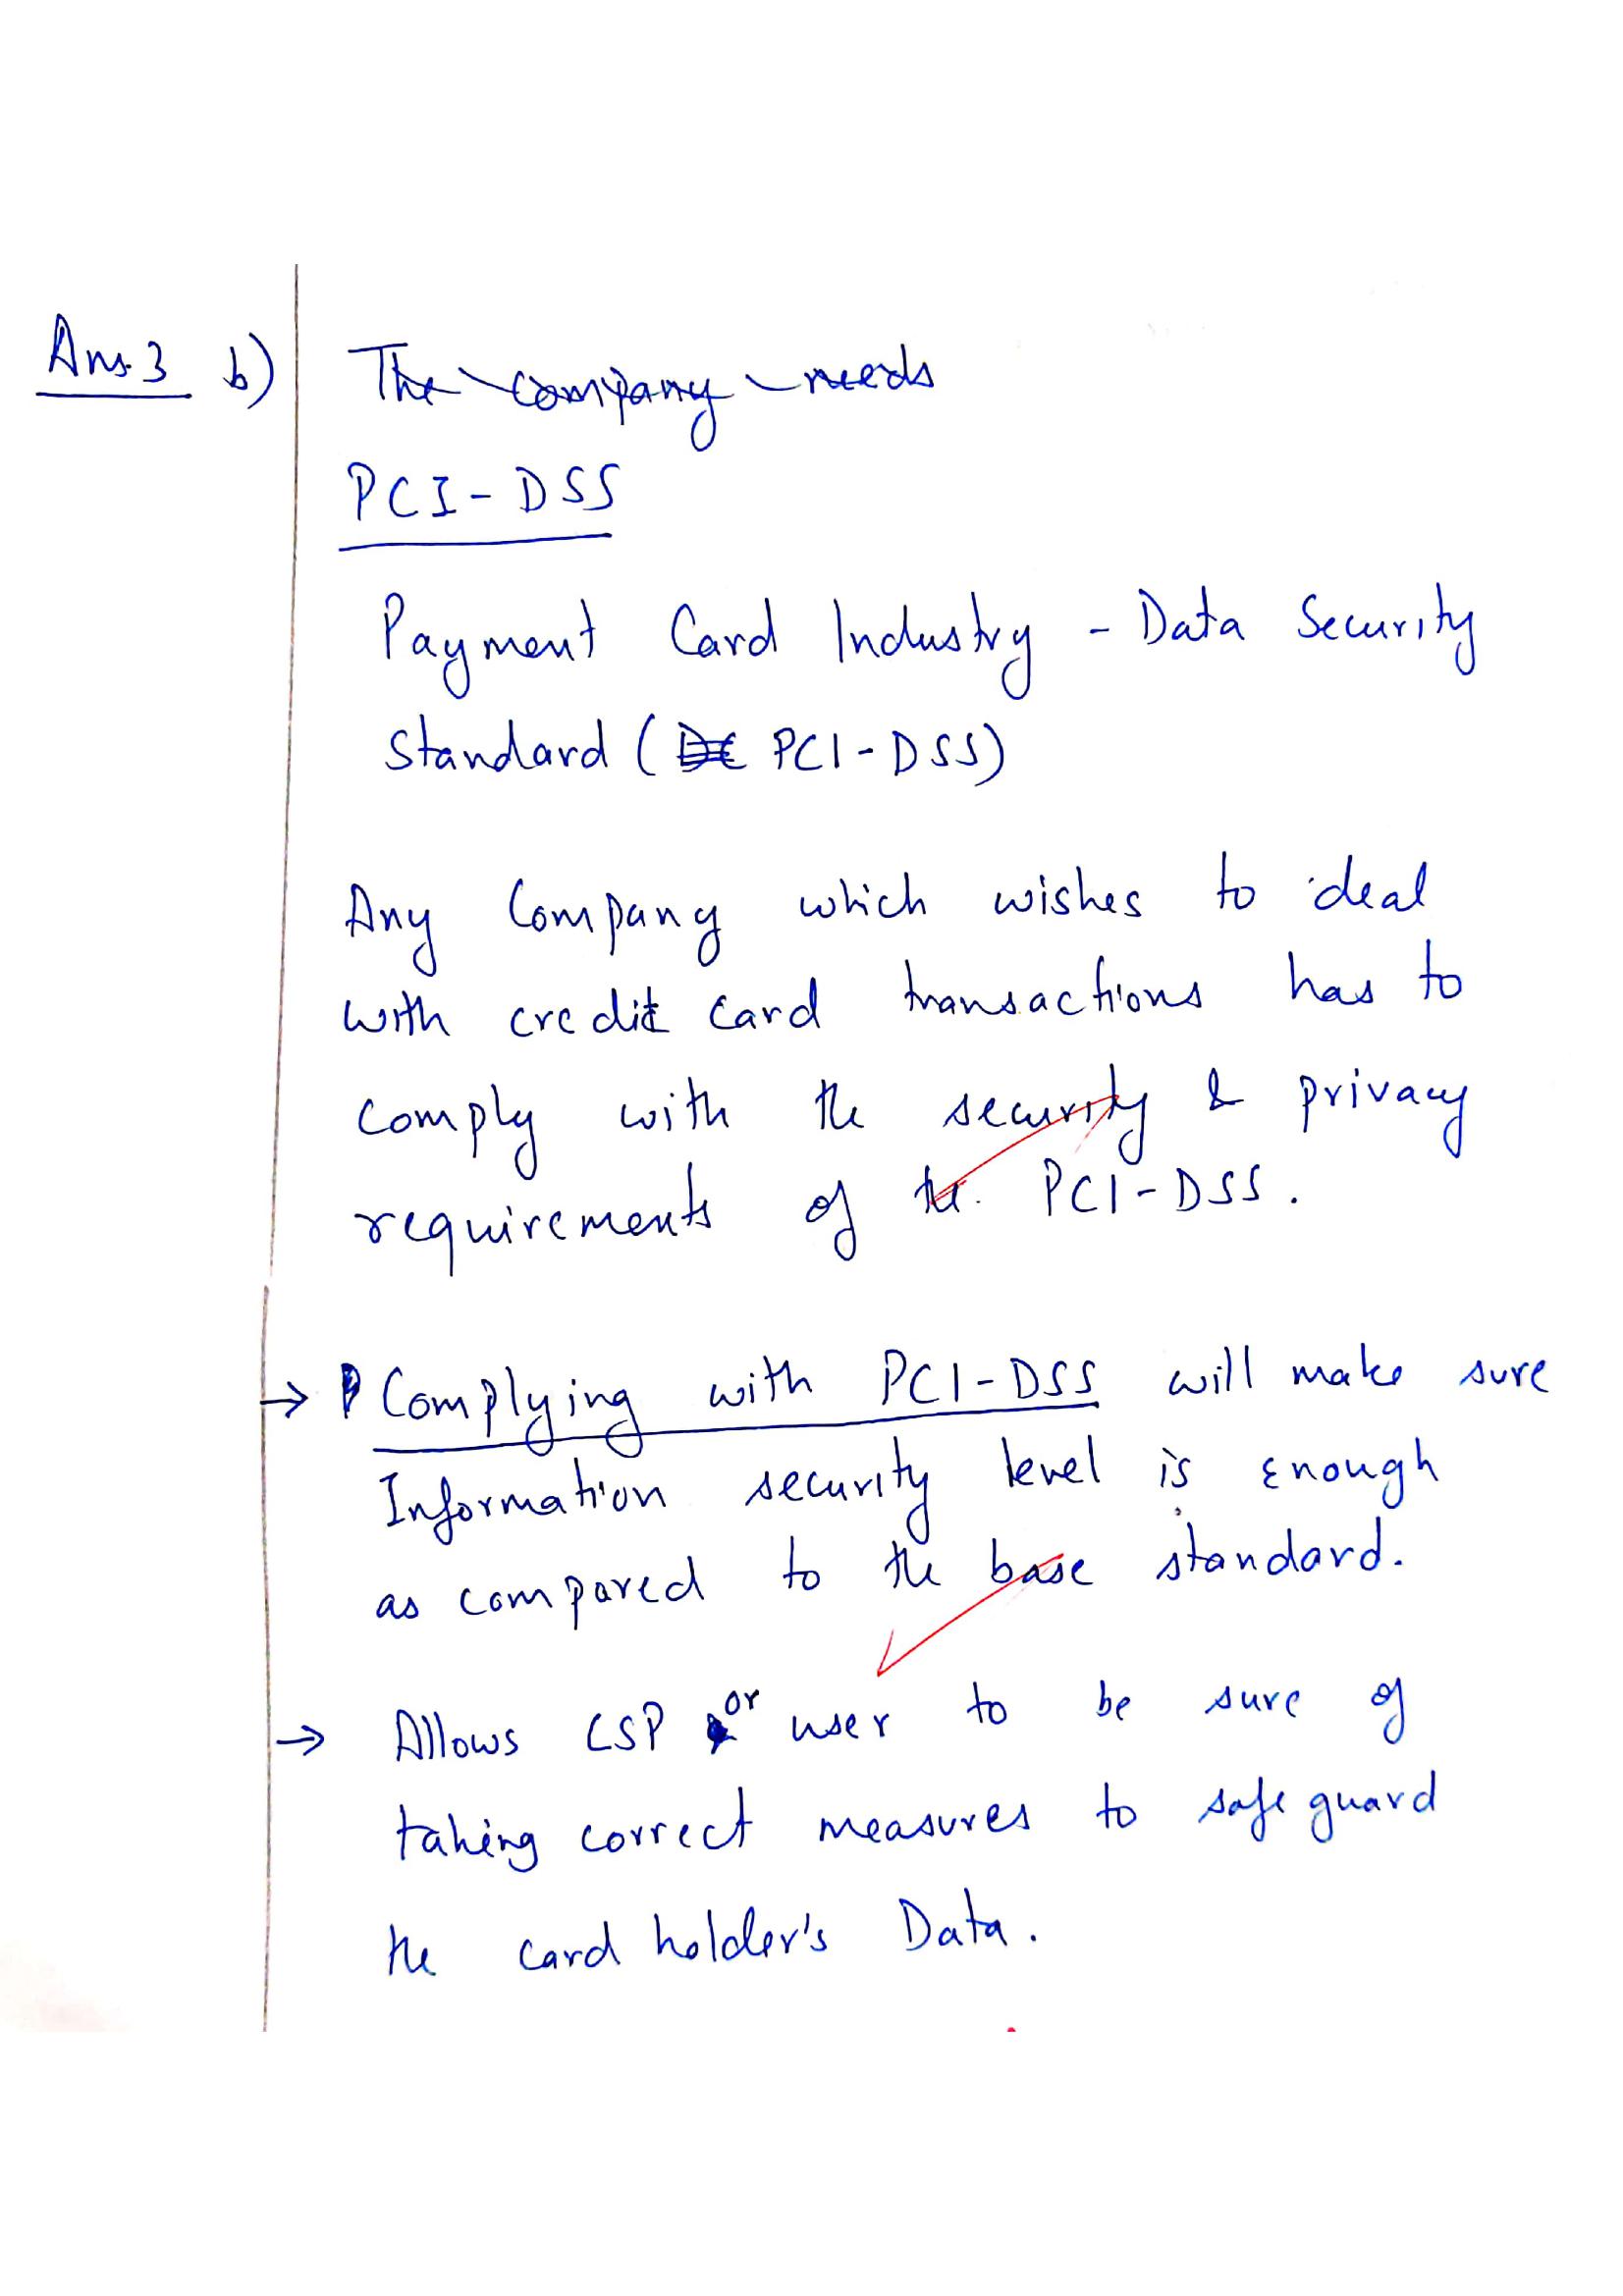 Ans. 3 b) The company needs
PCI-DSS
Payment Card Industry - Data Security
Standard ( PCI-DSS)
Any Company which wishes to deal
with credit card transactions has to
comply with the security & privacy
requirements of the PCI-DSS.
→ Complying with PCI-DSS will make sure
Information security level is enough
as compared to the base standard.
→ Allows CSP or user to be sure of
taking correct measures to safe guard
the card holder's Data.